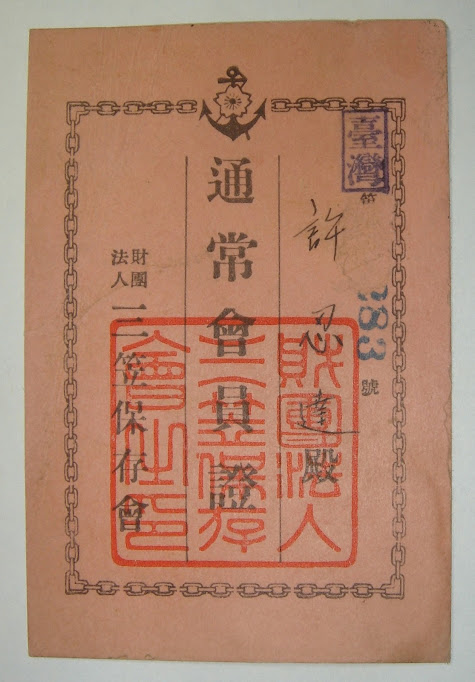 臺灣
第 號
許忍達殿
通常會員證
財團
法人
三笠保存會
財團法人
三笠保存
會之印